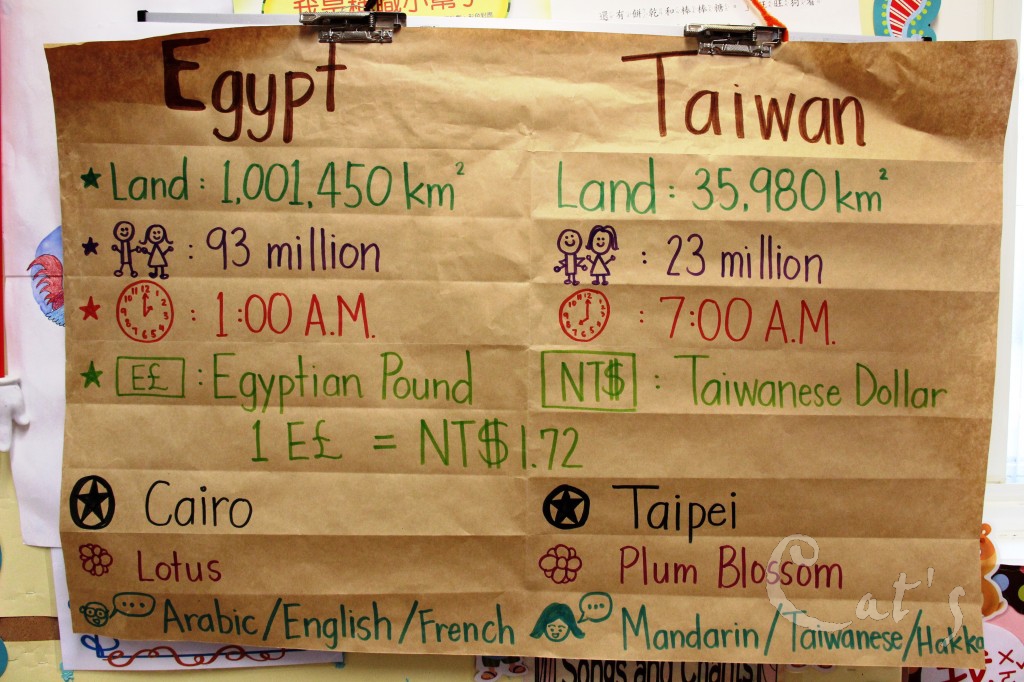 過有餅乾和棒棒糖。
Egypt Taiwan
★ Land : 1,001,450 km² Land : 35,980 km²
★ : 93 million : 23 million
★ : 1:00 A.M. : 7:00 A.M.
★ E£ : Egyptian Pound NT$ : Taiwanese Dollar
1 E£ = NT$1.72
Cairo Taipei
Lotus Plum Blossom
Arabic/English/French Mandarin/Taiwanese/Hakka
Cat's
Songs and Chants